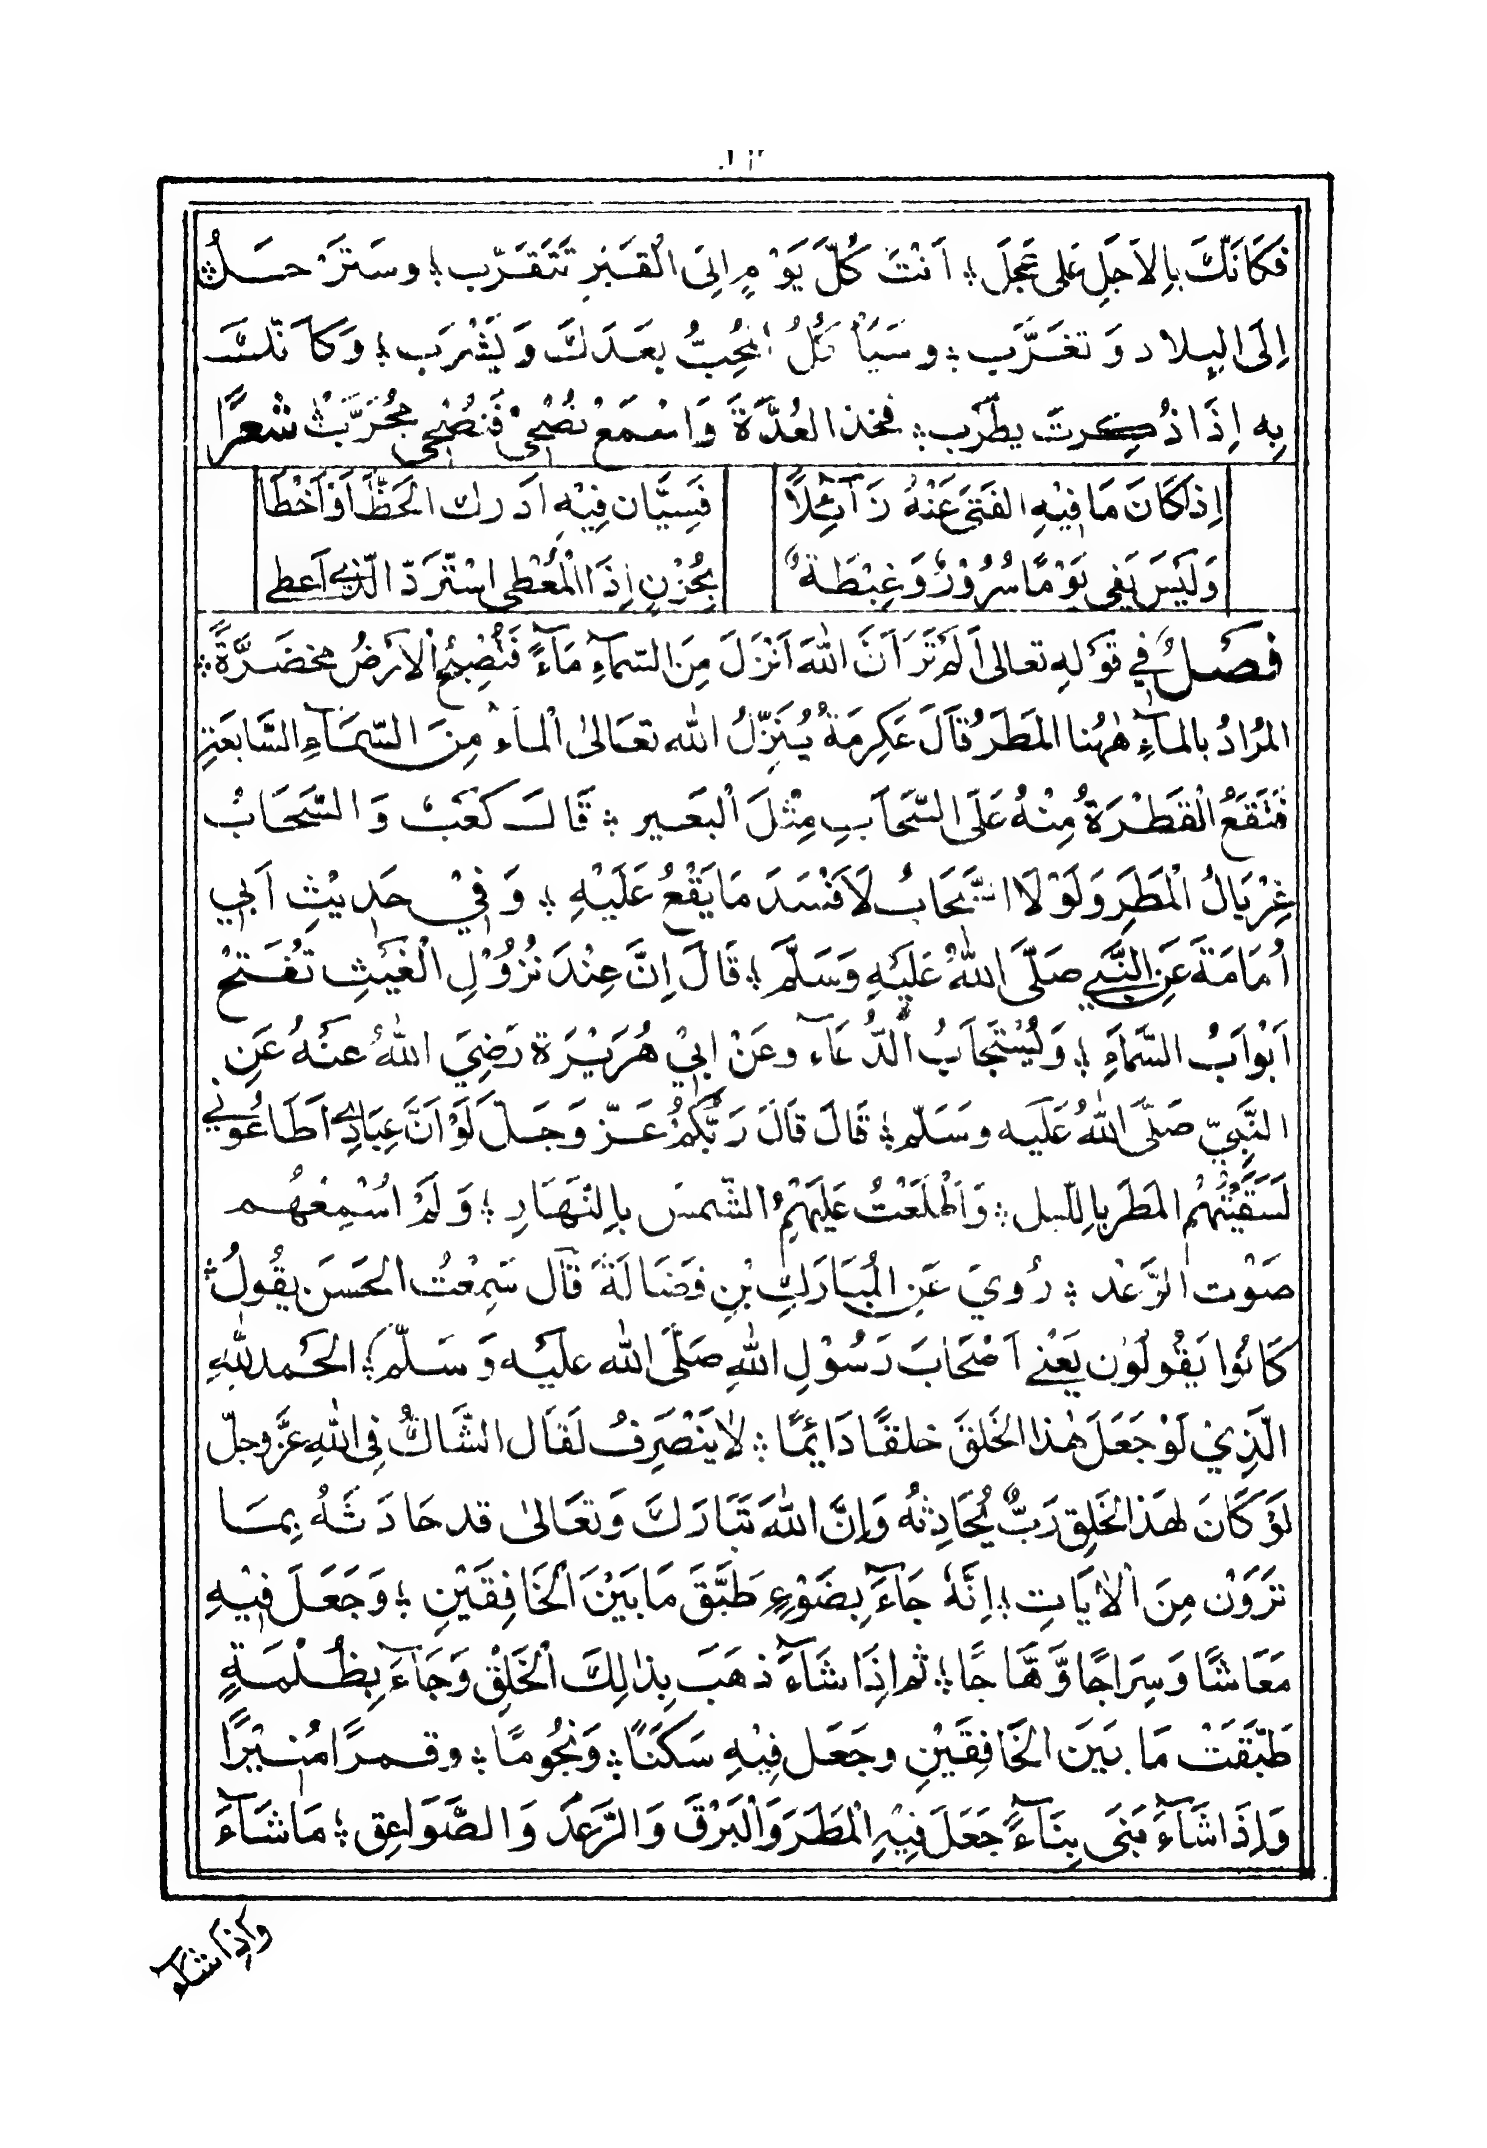 فَكَاَنَّكَ بِالاَجَلِ عَلى عَجَلَ ؞ اَنْتَ كُلَّ يَوْمٍ اِلىَ الْقَبْرِ تَتَقَرَّب ؞ وستَرْحَلُ ؞
اِلىَ البِلاد وَتغَرَّب ؞ وسَيَأْكُلُ المُحِبُّ بعَدَكَ وَيَشْرَب ؞ وَكاَنّكَ
بِه اِذَا ذُكِرتَ يطْرَب ؞ فخذ العُدَّةَ وَاسْمَعْ نُصْحِيْ فَنُصْحِي مُجَرَّبْ شعرًا
اِذَا كَانَ مَا فيْهِ الفَتَى عَنْهُ زَآئِلاً فَسِيَّان فِيْهِ اَدرك الحَظَّ اَوْ اَخْطَا
وَلَيَسَ يَفى يَوْمًا سُرُوْرٌ وَغِبْطَةٌ بِحُزْنٍ اِذَا الْمُعْطِى اسْتَرَدّ الّذِے اَعطى
فَصَلٌ في قوَلهِ تعالى اَلَمْ تَرَ اَنَّ اللهَ اَنْزَلَ مِنَ السّمآءِ مَآءً فَتُصْبِحُ الْاَرَضُ مخضَرَّةً ؞
المُرَادُ بالمآءِ هٰهُنا المَطَرُ قاَلَ عَكِرمَةُ يُنَزِّلُ الله تعَالىٰ اْلمآءَ مِنَ السّمَآءِ السَّابعَةِ
فَتَقَعُ الْقَطْرَةُ مِنْهُ عَلَى السَّحَابِ مِثْلَ اْلبَعَير ؞ قَالَ كَعَبْ وَالسَّحَابُ
غِرْبَالُ الْمَطَرِ وَلَوْلَا السَّحَابُ لَاَفْسَدَ مَا يَقَعُ عَلَيْهِ ؞ وَفيْ حَديْثِ اَبي
اُمَامَةَ عَنِ النَّبِي صَلَّى اللهُ عَلَيَهِ وَسَلَّمَ ؞ قَالَ اِنَّ عِنْدَ نُزُوْلِ الْغَيَثِ تُفَتحْ
اَبْوَابُ السَّمآءِ ؞ وَيُسْتَجَابُ الدُّعَآء وعَنْ ابيْ هُرَيْرَة رَضِيَ اللهُ عنَهُ عَنِ
النَّبِيّ صَلَّى اللهُ عَليَه وسَلّم ؞ قَالَ قَالَ رَبُّكُمْ عَزّ وَجَلّ لَوْ اَنَّ عِبَادِے اَطَاعُوني
لَسَقَيْتُهُمْ المَطَر باِللّيل ؞ وَاَطْلَعْتُ عَليَهِمُ الشّمسَ باِلنّهَارِ ؞ وَلَمْ اُسْمِعْهُم
صَوْت الرَّعْد ؞ رُويَ عَنِ الْمُبَارَكِ بْنِ فَضَالَةَ قاَل سَمِعْتُ الحَسَن يقُولُ ؞
كَانُوا يَقُولوُن يَعْنے اَصْحَابَ رَسُوْلِ اللهِ صَلَّى الله عليَه وَسَلّم ؞ الحَمد لِلّٰهِ
الّذِيْ لَوْ جَعَلَ هٰذا الخَلقَ خلقًا دَائِمًا ؞ لاَ يَنْصَرِفُ لَقاَل الشَّاكُّ فِى اللهِ عزَّ وجلّ
لَوَْ كَانَ لهَذا الخَلِق رَبٌّ يُحَادِثهُ وَاِنَّ اللهَ تَبَارَكَ وَتعَالىٰ قد حَادَثَهُ بِمَا
تَرَوْن مِنَ الْاٰيَاتِ ؞ اِنَّهٗ جَآءَ بِضَوْءٍ طَبَّقَ مَا بَيْنَ اْلخَافِقَيْنِ ؞ وَجَعَلَ فيْهِ
مَعَاشًا وَسِرَاجًا وَّهَّاجًا ؞ ثم اِذَا شَآءَ ذهَبَ بِذٰلِكَ اْلخَلْق وَجَآءَ بِظُلْمَةٍ
طَبَّقَتْ مَا بَيَن الخَافِقَيْنِ وجَعَل فِيْهِ سَكَنًا ؞ وَنجُومًا ؞ وقمرًا مُنيْرًا
وَاِذَا شَآءَ بَنَى بِنَآءً جَعَلَ فِيْهِ الْمَطَرَ وَاْلبَرْقَ وَالرَّعدَ وَالصَّوَاعِق ؞ مَا شَآءَ
وَاِذَا شَآءَ